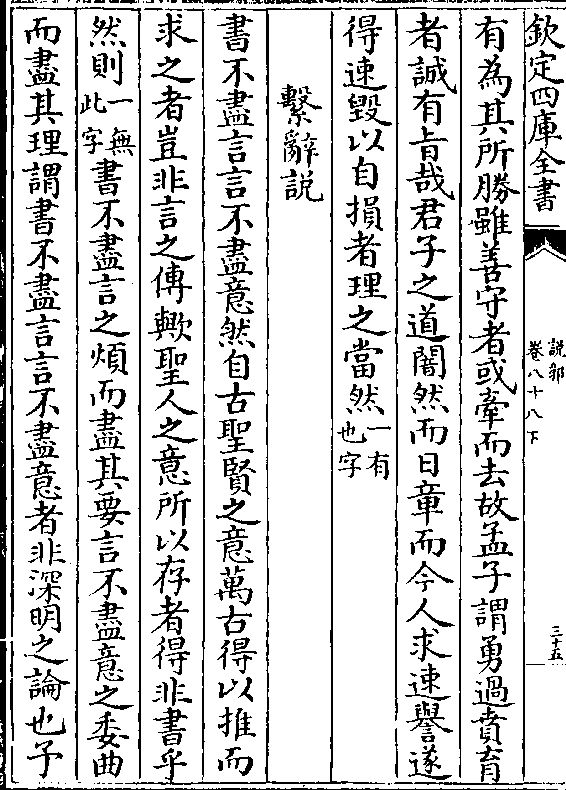 欽定四庫全書
說郛
卷八十八下
三十五
有為其所勝雖善守者或牽而去故孟子謂勇過賁育
者誠有旨哉君子之道闇然而日章而今人求速譽遂
得速毀以自損者理之當然一有也字
繫辭說
書不盡言言不盡意然自古聖賢之意萬古得以推而
求之者豈非言之傳歟聖人之意所以存者得非書乎
然則一無此字書不盡言之煩而盡其要言不盡意之委曲
而盡其理謂書不盡言言不盡意者非深明之論也予